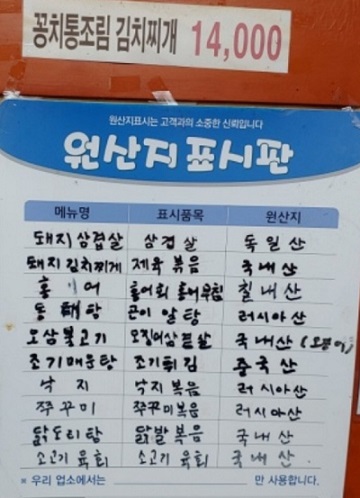 꽁치통조림 김치찌개 14,000
원산지표시는 고객과의 소중한 신뢰입니다
원산지 표시판
메뉴명 표시품목 원산지
돼지 삼겹살 삼겹살 독일산
돼지 김치찌게 제육 볶음 국내산
홍어 홍어회 홍어무침 칠내산
동태탕 곤이 알탕 러시아산
오삼불고기 오징어삼겹살 국내산
조기매운탕 조기튀김 중국산
낙지 낙지 볶음 러시아산
쭈꾸미 쭈꾸미볶음 러시아산
닭도리탕 닭발볶음 국내산
소고기 육회 소고기 육회 국내산
※ 우리 업소에서는 만 사용합니다.